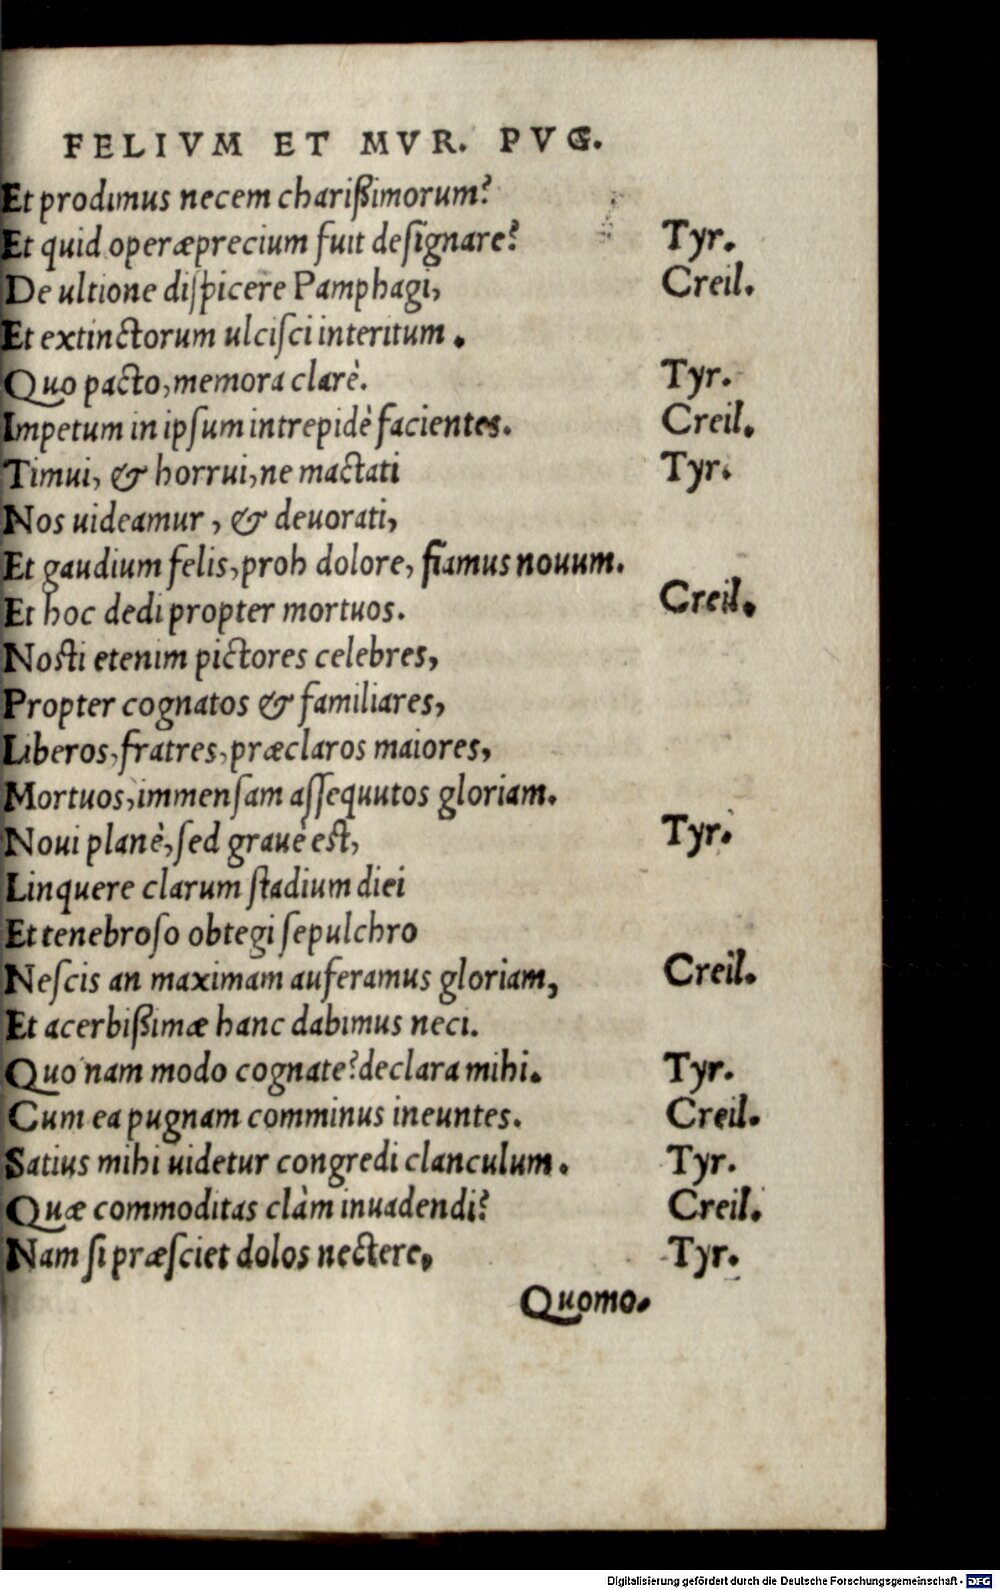 FELIVM ET MVR. PVG.
Et prodimus necem charißimorum?
Et quid operæprecium fuit deſignare? Tyr.
De ultione diſpicere Pamphagi, Creil.
Et extinctorum ulciſci interitum.
Quo pacto, memora clarè. Tyr.
Impetum in ipſum intrepidè facientes. Creil.
Timui, & horrui, ne mactati Tyr.
Nos uideamur, & deuorati,
Et gaudium felis, proh dolore, fiamus nouum.
Et hoc dedi propter mortuos. Creil.
Noſti etenim pictores celebres,
Propter cognatos & familiares,
Liberos, fratres, præclaros maiores,
Mortuos, immenſam aſſequutos gloriam.
Noui planè, ſed grauè eſt, Tyr.
Linquere clarum ſtadium diei
Et tenebroſo obtegi ſepulchro
Neſcis an maximam auferamus gloriam, Creil.
Et acerbißimæ hanc dabimus neci.
Quo nam modo cognate? declara mihi. Tyr.
Cum ea pugnam comminus ineuntes. Creil.
Satius mihi uidetur congredi clanculum. Tyr.
Quæ commoditas clàm inuadendi? Creil.
Nam ſi præſciet dolos nectere, Tyr.
Quomo.
Digitalisierung gefördert durch die Deutsche Forschungsgemeinschaft - DFG